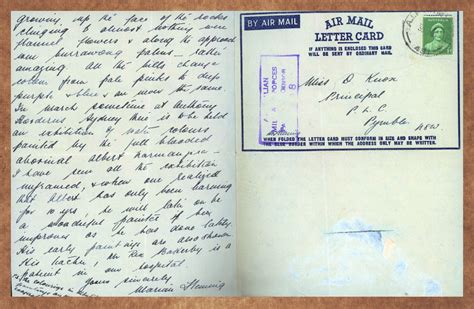 growing up the face of the rocks
clinging to almost nothing were
flannel flowers & along the approach
were burrawong palms. Rather
amazing all the hills change
colour from pale pinks to deep
purples & blue & are never the same.
In March sometime at Anthony
Horderns Sydney there is to be held
an exhibition of water colours
painted by the full blooded
aboriginal Albert
I have seen all the exhibition
unframed, & when one realized
that Albert has only been learning
for 10 yrs, he will later on be
a wonderful painter if he
improves as he has done lately
His early paintings are also shown
His teacher, Mr Rex Batterby is a
patient in our hospital.
Yours sincerely
Marian Fleming
BY AIR MAIL
AIR MAIL
LETTER CARD
IF ANYTHING IS ENCLOSED THIS CARD
WILL BE SENT BY ORDINARY MAIL.
Miss D. Knox
Principal
P.L.C.
Pymble
NSW
WHEN FOLDED THE LETTER CARD MUST CONFORM IN SIZE AND SHAPE WITH
THE BLUE BORDER WITHIN WHICH THE ADDRESS ONLY MAY BE WRITTEN.